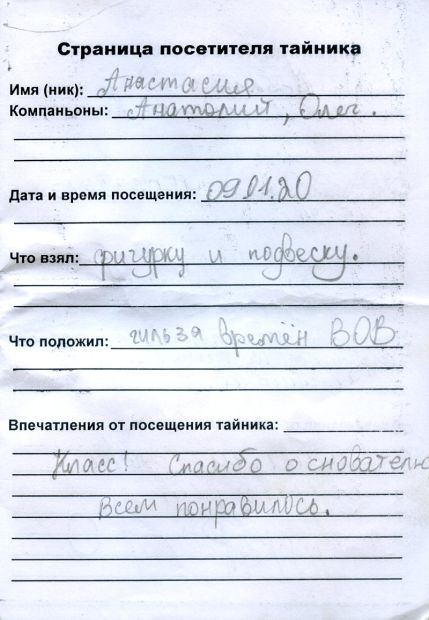 Страница посетителя тайника
Имя (ник): Анастасия
Компаньоны: Анатолий, Олег.
Дата и время посещения: 09.01.20
Что взял: фигурку и подвеску.
Что положил: гильза времён ВОВ
Впечатления от посещения тайника:
Класс! Спасибо основателю
Всем понравилось.